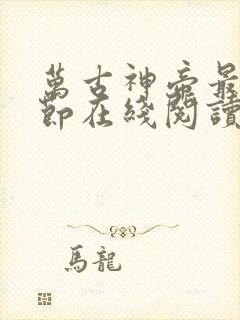 萬古神帝最
節在綫閱讀
馬龍